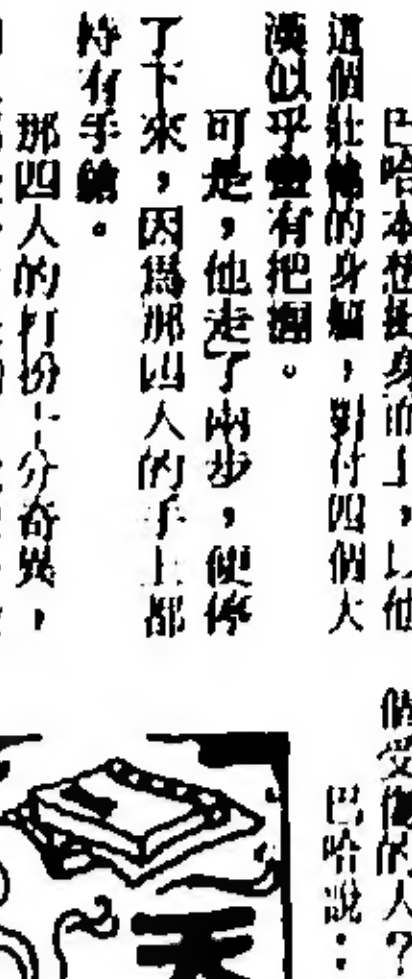 巴哈本想挺身而上，以他
這個壯健的身軀，對付四個大
漢似乎蠻有把握。
可是，他走了兩步，便停
了下來，因爲那四人的手上都
持有手鎗。
那四人的打扮十分奇異，
個受傷的人？
巴哈說：
天